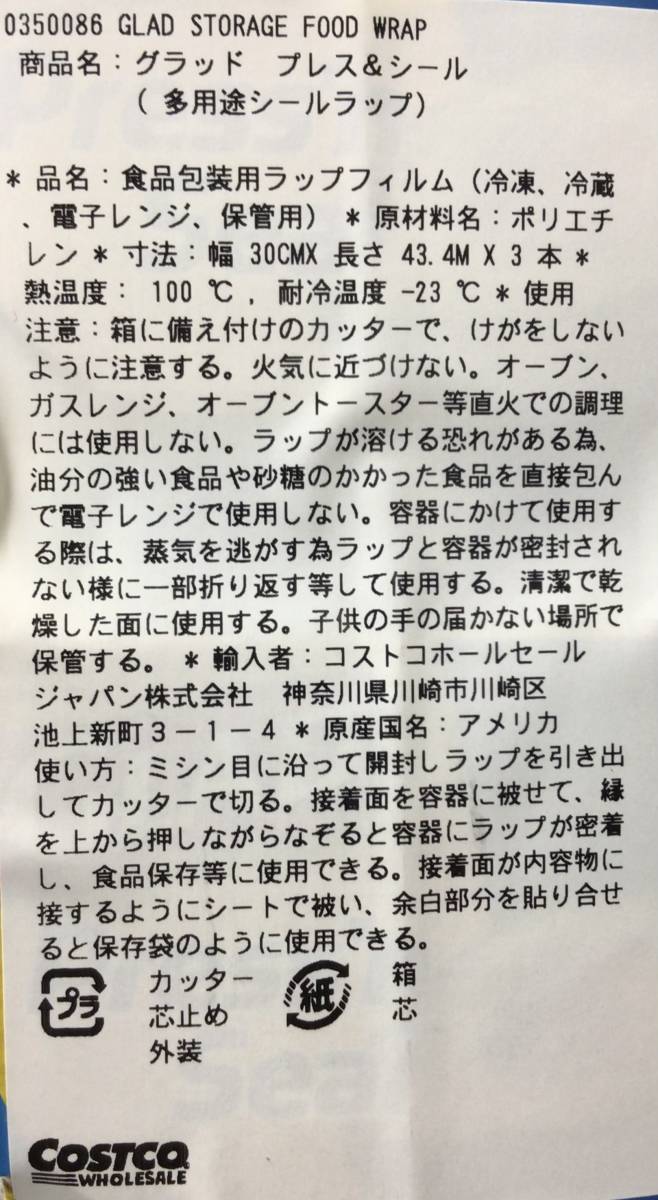 0350086 GLAD STORAGE FOOD WRAP
商品名：グラッド　プレス&シール
（多用途シールラップ）
* 品名：食品包装用ラップフィルム（冷凍、冷蔵
、電子レンジ、保管用） * 原材料名：ポリエチ
レン * 寸法：幅 30CMX 長さ 43.4M X 3 本 *
熱温度： 100 ℃ , 耐冷温度 -23 ℃ * 使用
注意：箱に備え付けのカッターで、けがをしない
ように注意する。火気に近づけない。オーブン、
ガスレンジ、オーブントースター等直火での調理
には使用しない。ラップが溶ける恐れがある為、
油分の強い食品や砂糖のかかった食品を直接包ん
で電子レンジで使用しない。容器にかけて使用す
る際は、蒸気を逃がす為ラップと容器が密封され
ない様に一部折り返す等して使用する。清潔で乾
燥した面に使用する。子供の手の届かない場所で
保管する。 * 輸入者：コストコホールセール
ジャパン株式会社　神奈川県川崎市川崎区
池上新町３－１－４ * 原産国名：アメリカ
使い方：ミシン目に沿って開封しラップを引き出
してカッターで切る。接着面を容器に被せて、縁
を上から押しながらなぞると容器にラップが密着
し、食品保存等に使用できる。接着面が内容物に
接するようにシートで被い、余白部分を貼り合せ
ると保存袋のように使用できる。
プラ カッター 紙 箱
芯止め 芯
外装
COSTCO
WHOLESALE